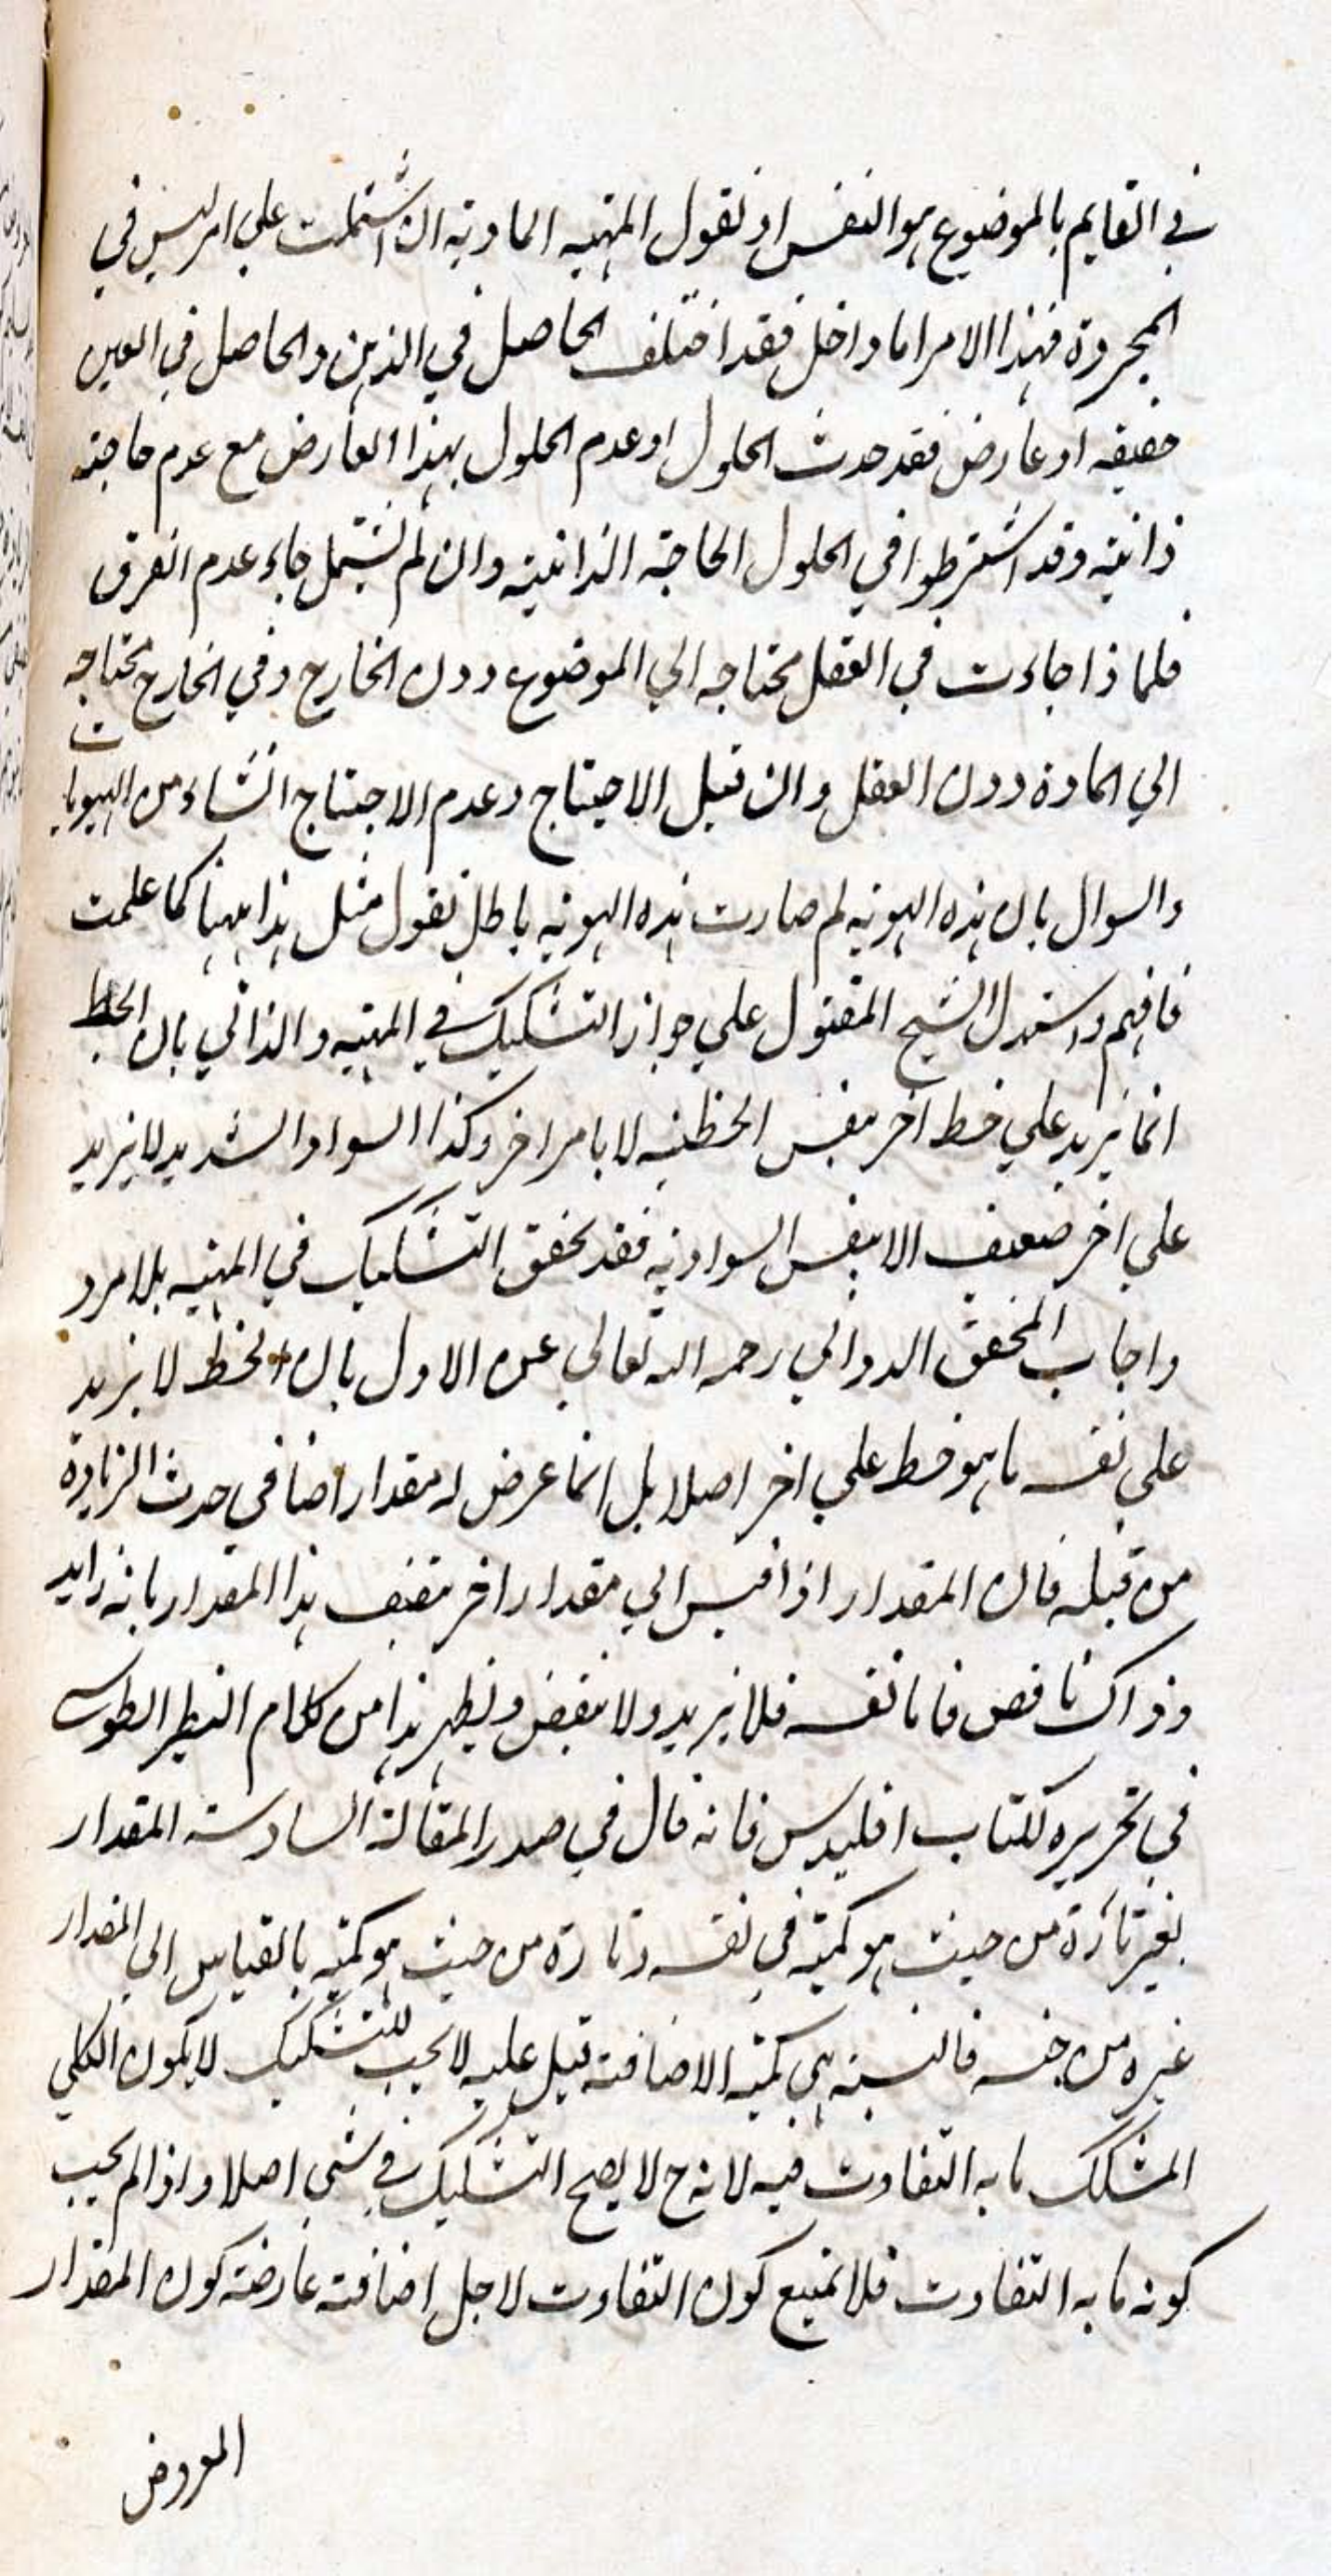 في القايم بالموضوع هو النفس او نقول المهيه المادية ان اشتملت علي امر ليس في
المجردة فهذا الامر اما داخل فقد اختلف الحاصل في الذهن والحاصل في العين
حقيقه او عارض فقد حدث الحلول او عدم الحلول بهذا العارض مع عدم حاجته
ذاتية وقد اشترطوا في الحلول الحاجة الذاتية وان لم تشتمل جاء عدم الفرق
فلماذا جاءت في العقل محتاجه الي الموضوع دون الخارج وفي الخارج محتاجه
الي المادة دون العقل وان قيل الاحتياج وعدم الاحتياج انشاء من الهويات
والسوال بان هذه الهويه لم صارت هذه الهويه باطل نقول مثل هذا ههنا كما علمت
فافهم واستدل الشيخ المقتول علي جواز التشكيك في المهيه والذاتي بان الخط
انما يزيد علي خط اخر بنفس الخطيه لا بامر اخر وكذا السواد الشديد لا يزيد
علي اخر ضعيف الا بنفس السواديه فقد تحقق التشكيك في المهيه بلا مرد
واجاب المحقق الدواني رحمه الله تعالي عن الاول بان الخط لا يزيد
علي نفسه ما هو خط علي اخر اصلا بل انما عرض له مقدار اضافي حدث الزيادة
من قبله فان المقدار اذا قيس الي مقدار اخر يتصف هذا المقدار بانه زايد
وذاك ناقص فاما نفسه فلا يزيد ولا ينقص ويظهر هذا من كلام النظير الطوسي
في تحريره لكتاب اقليدس فانه قال في صدر المقالة السادسة المقدار
يعتبر تارة من حيث هو كمية في نفسه وتارة من حيث هو كميه بالقياس الي المقدار
غيره من جنسه فالنسبة هي كميه الاضافة قيل عليه لا يجب للتشكيك لا يكون الكلي
المشكك ما به التفاوت فيه لانه ح لا يصح التشكيك في شي اصلا واذا لم يجب
كونه ما به التفاوت فلا يمنع كون التفاوت لاجل اضافة عارضة كون المقدار
المعروض